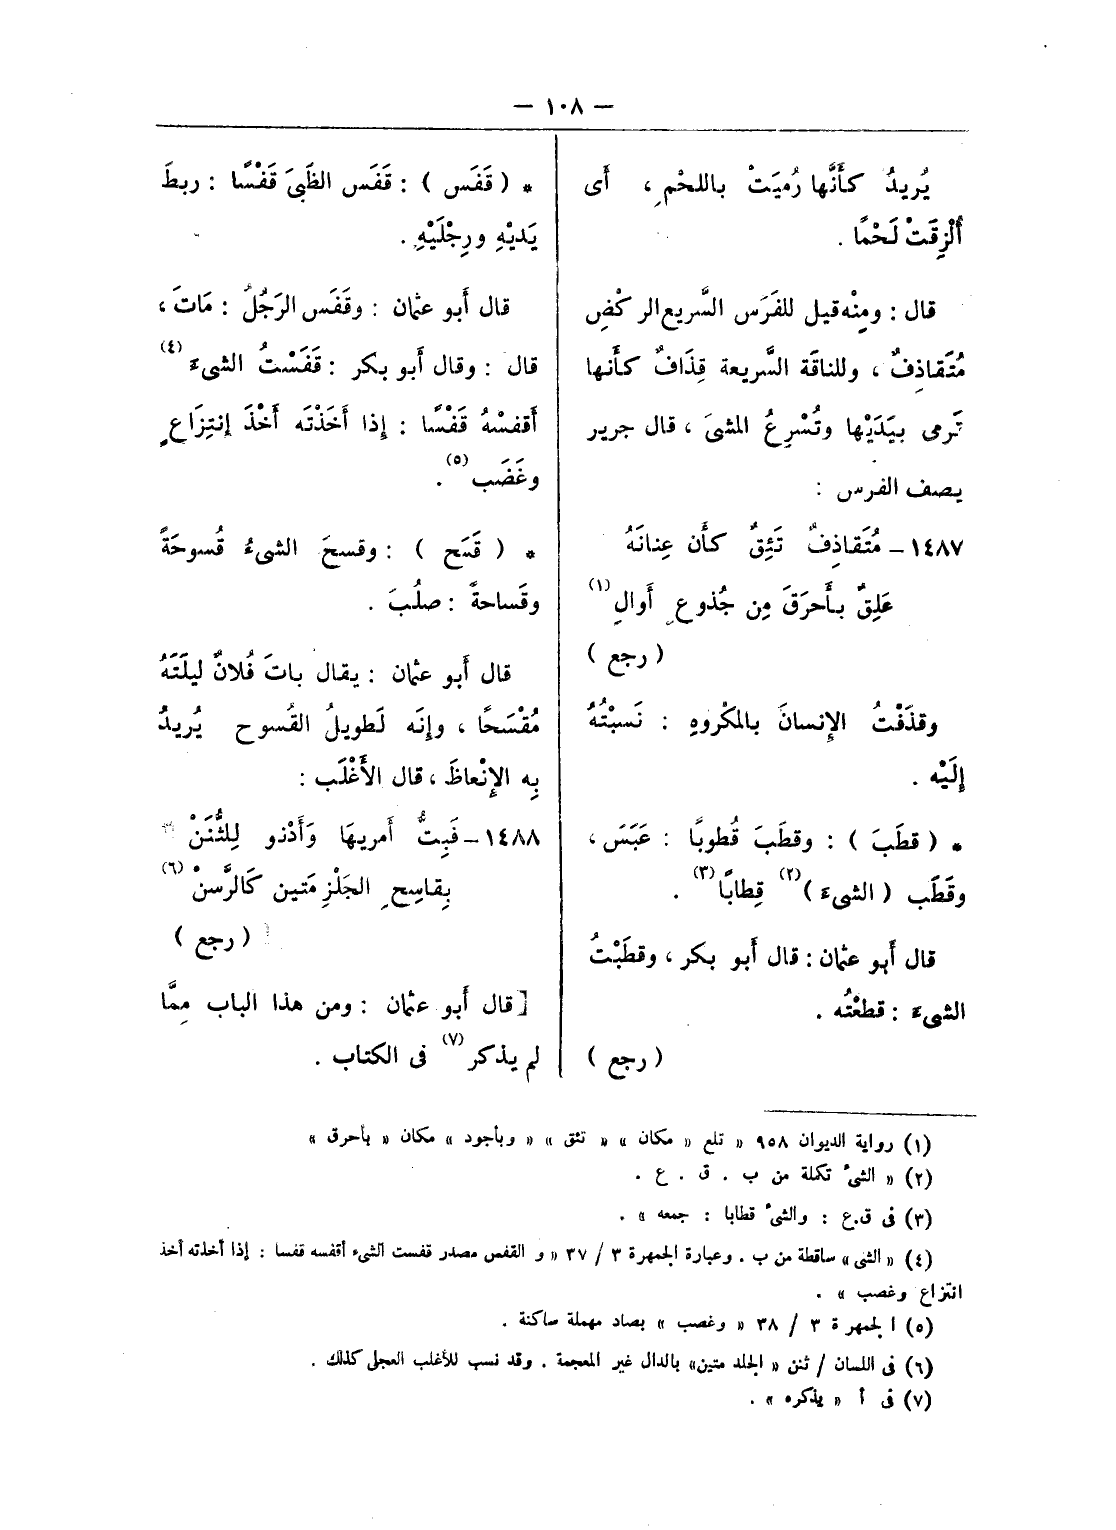 — ١٠٨ —
يُريدُ كأَنَّها رُميَتْ باللحْمِ ، أَى
أُلْزِقَتْ لَحْمًا .
قال : ومنْه قيل للفَرَس السَّريع الركْضِ
مُتَقاذِفٌ ، وللناقَة السَّريعة قِذَافٌ كأَنها
تَرمى بيَدَيْها وتُسْرِعُ المشىَ ، قال جرير
يصف الفرس :
١٤٨٧ – مُتَقاذِفٌ تَئِقٌ كأَن عِنانَهُ
عَلِقٌ بأَحرَقَ مِن جُذوعِ أَوالِ (١)
( رجع )
وقذَفْتُ الإِنسانَ بالمكْروهِ : نَسبْتُهُ
إِلَيْه .
* ( قطَبَ ) : وقطَبَ قُطوبًا : عَبَسَ ،
وقَطَب ( الشىءَ ) (٢) قِطابًا (٣) .
قال أَبو عثمان : قال أَبو بكر ، وقطَبْتُ
الشىءَ : قطعْتُه .
( رجع )
* ( قَفَس ) : قَفَس الظَبىَ قَفْسًا : ربطَ
يَديْهِ ورِجْلَيْهِ .
قال أَبو عثمان : وقَفَس الرَجُلُ : مَاتَ ،
قال : وقال أَبو بكر : قَفَسْتُ الشىءَ (٤)
أَقفسُهُ قَفْسًا : إِذا أَخَذْتَه أَخْذَ إِنتِزَاعٍ
وغَضَب (٥) .
* ( قَسَح ) : وقسحَ الشىءُ قُسوحَةً
وقَساحةً : صلُبَ .
قال أَبو عثمان : يقال باتَ فُلانٌ ليلَتَهُ
مُقْسَحًا ، وإِنَه لَطويلُ القُسوح يُريدُ
بِه الإِنْعاظَ ، قال الأَغْلَب :
١٤٨٨ – فَبِتُّ أَمريهَا وَأَدْنو لِلثُّنَنْ
بِقاسِحِ الجَلْزِ مَتين كَالرَّسنْ (٦)
( رجع )
[ قال أَبو عثمان : ومن هذا الباب مِمَّا
لم يذكر (٧) فى الكتاب .
(١) رواية الديوان ٩٥٨ « تلع « مكان » « تئق » « وبأجود » مكان « بأحرق »
(٢) « الشىُ تكملة من ب . ق . ع .
(٣) فى ق.ع : والشىُ قطابا : جمعه » .
(٤) « الشى » ساقطة من ب . وعبارة الجمهرة ٣ / ٣٧ « و القفس مصدر قفست الشىء أقفسه قفسا : إذا أخذته أخذ
انتزاع وغصب » .
(٥) الجمهرة ٣ / ٣٨ « وغصب » بصاد مهملة ساكنة .
(٦) فى اللسان / ثنن « الجلد متين» بالدال غير المعجمة . وقد نسب للأغلب العجلى كذلك .
(٧) فى أ « يذكره » .